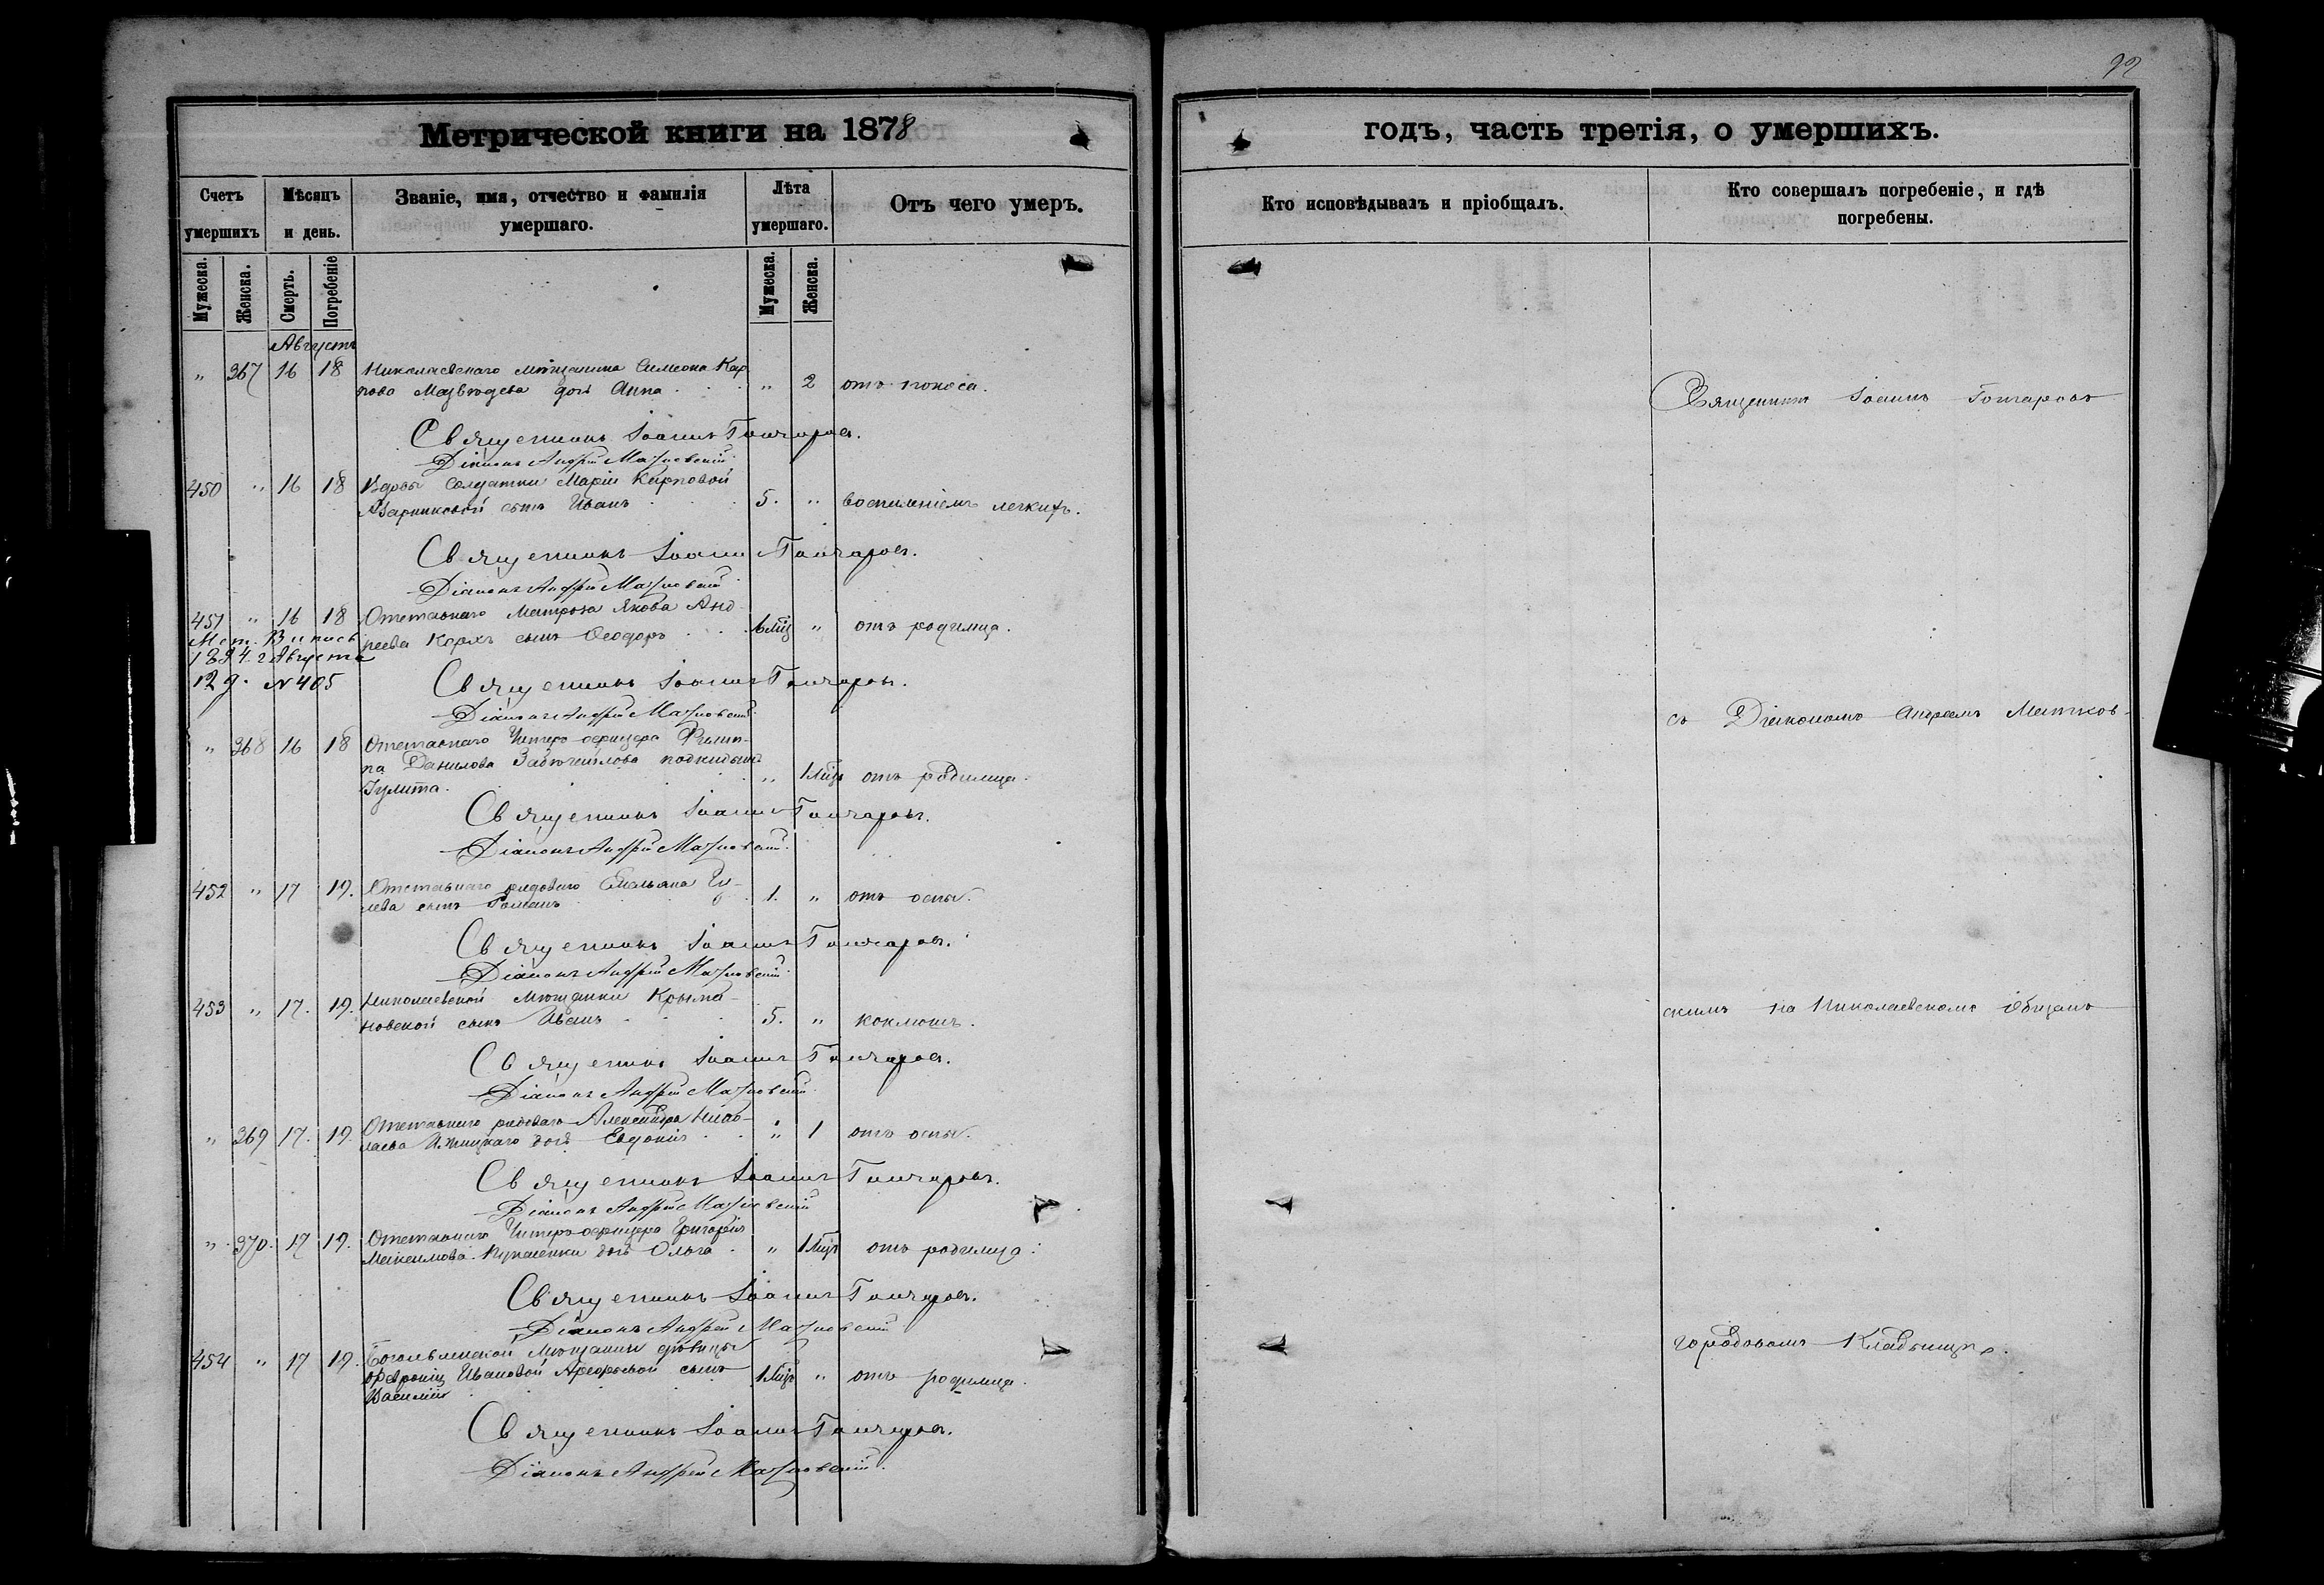 92
Метрической книги на 1878
годъ, часть третія, о умершихъ.
Счетъ умершихъ
Мѣсяцъ и день.
Званіе, имя, отчество и фамилія умершаго.
Лѣта умершаго.
Отъ чего умеръ.
Кто исповѣдывалъ и пріобщалъ.
Кто совершалъ погребеніе, и гдѣ погребены.
Мужеска.
Женска.
Смерть.
Погребеніе
Мужеска.
Женска.
Августъ
" 367 16 18 Николаевскаго мѣщанина Симеона Кар-
пова дочь Анна " 2 отъ поноса.
Священникъ Іоаннъ Гончаровъ.
Діаконъ Андрей Матковскій
450 " 16 18 Вдовы солдатки Маріи Карповой
сынъ Иванъ 5. " воспаленіемъ легкихъ.
Священникъ Іоаннъ Гончаровъ.
Діаконъ Андрей Матковскій
451 " 16 18 Отставнаго Матроса Якова Анд-
реева сынъ Ѳеодоръ " отъ родимца.
Мет. Выпись
1894 г. Августа
12 д. № 405
Священникъ Іоаннъ Гончаровъ.
Діаконъ Андрей Матковскій
" 368 16 18 Отставнаго Унтеръ-офицера Филип-
па Данилова подкидышъ
Іулита. " 1 Мѣц отъ родимца.
Священникъ Іоаннъ Гончаровъ.
Діаконъ Андрей Матковскій.
452 " 17 19. Отставнаго рядоваго Емельяна
сынъ Романъ 1. " отъ оспы.
Священникъ Іоаннъ Гончаровъ.
Діаконъ Андрей Матковскій.
453 " 17. 19. Николаевской мѣщанки Крыма-
новской сынъ Иванъ 5. " коклюшъ.
Священникъ Іоаннъ Гончаровъ.
Діаконъ Андрей Матковскій.
" 369 17. 19. Отставнаго рядоваго Александра Нико-
лаева дочь Евдокія " 1 отъ оспы.
Священникъ Іоаннъ Гончаровъ.
Діаконъ Андрей Матковскій
" 370. 17 19. Отставнаго Унтеръ-офицера Григорія
Максимова дочь Ольга " 1 Мѣц отъ родимца.
Священникъ Іоаннъ Гончаровъ.
Діаконъ Андрей Матковскій
454 " 17 19. мѣщанки дѣвицы
Ивановой сынъ
Василій 1 Мѣц " отъ родимца.
Священникъ Іоаннъ Гончаровъ.
Діаконъ Андрей Матковскій.
Священникъ Іоаннъ Гончаровъ
съ Діакономъ Андреемъ Матков-
скимъ на Николаевскомъ общемъ
городовомъ Кладбищѣ.